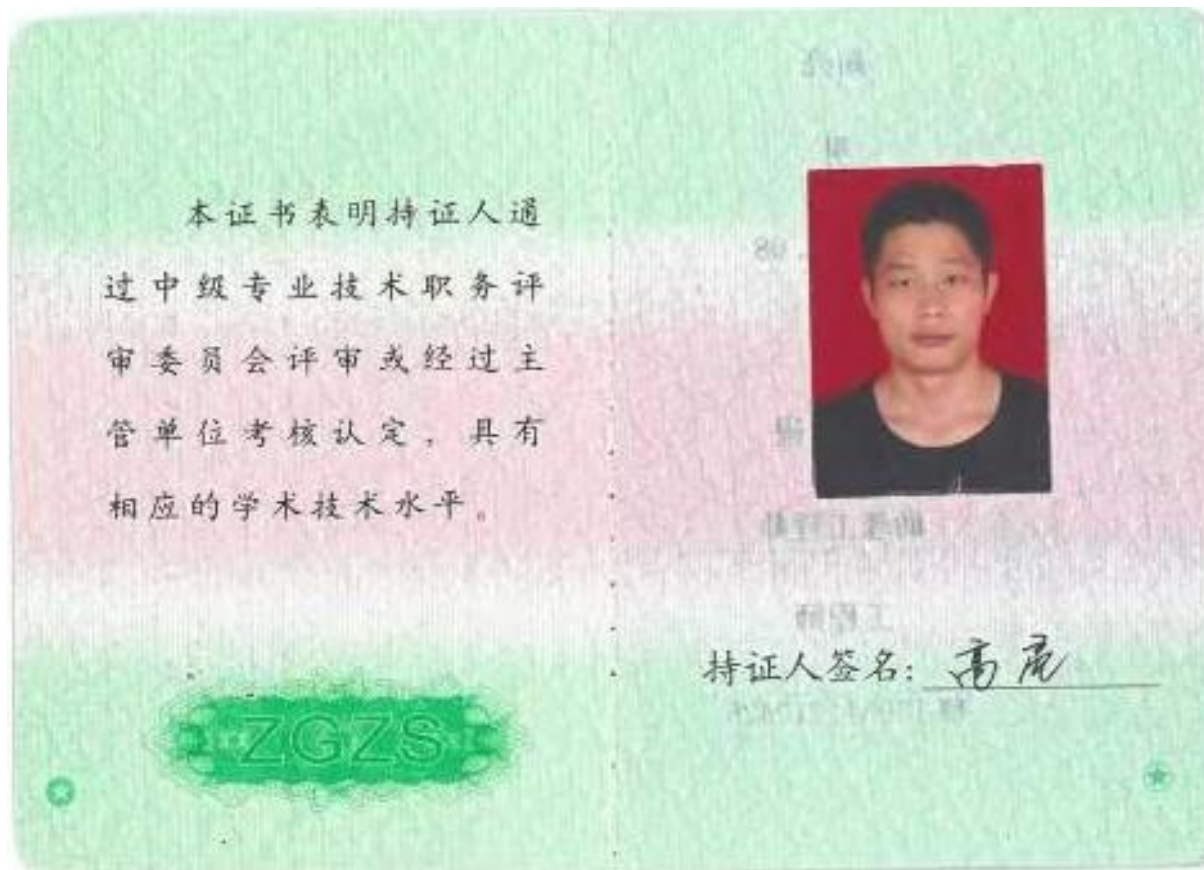 本证书表明持证人通
过中级专业技术职务评
审委员会评审或经过主
管单位考核认定，具有
相应的学术技术水平。
ZGZS
工程师
持证人签名：高亮